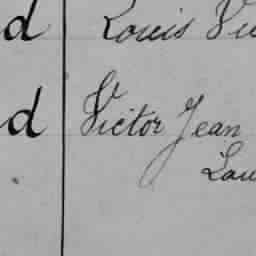 d Louis
d Victor Jean